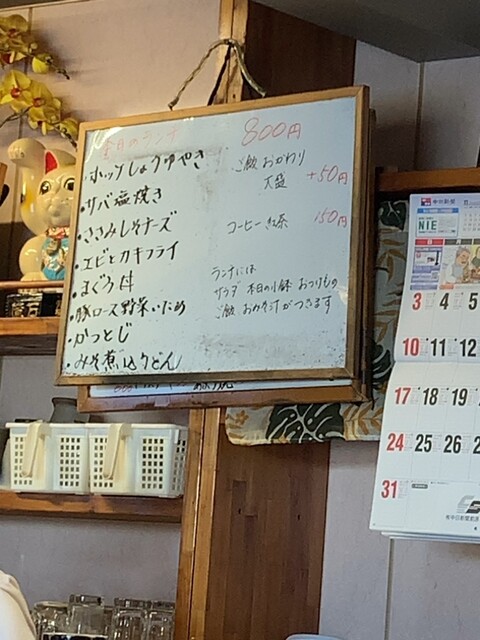 本日のランチ 800円
・ホッケしょうゆやき
・サバ塩焼き
・ささみしそチーズ
・エビとカキフライ
・まぐろ丼
・豚ロース野菜いため
・かつとじ
・みそ煮込うどん
ご飯 おかわり
大盛 +50円
コーヒー 紅茶 150円
ランチには
サラダ 本日の小鉢 おつけもの
ご飯 おみそ汁がつきます
NIE
3 4 5
10 11 12
17 18 19
24 25 26
31